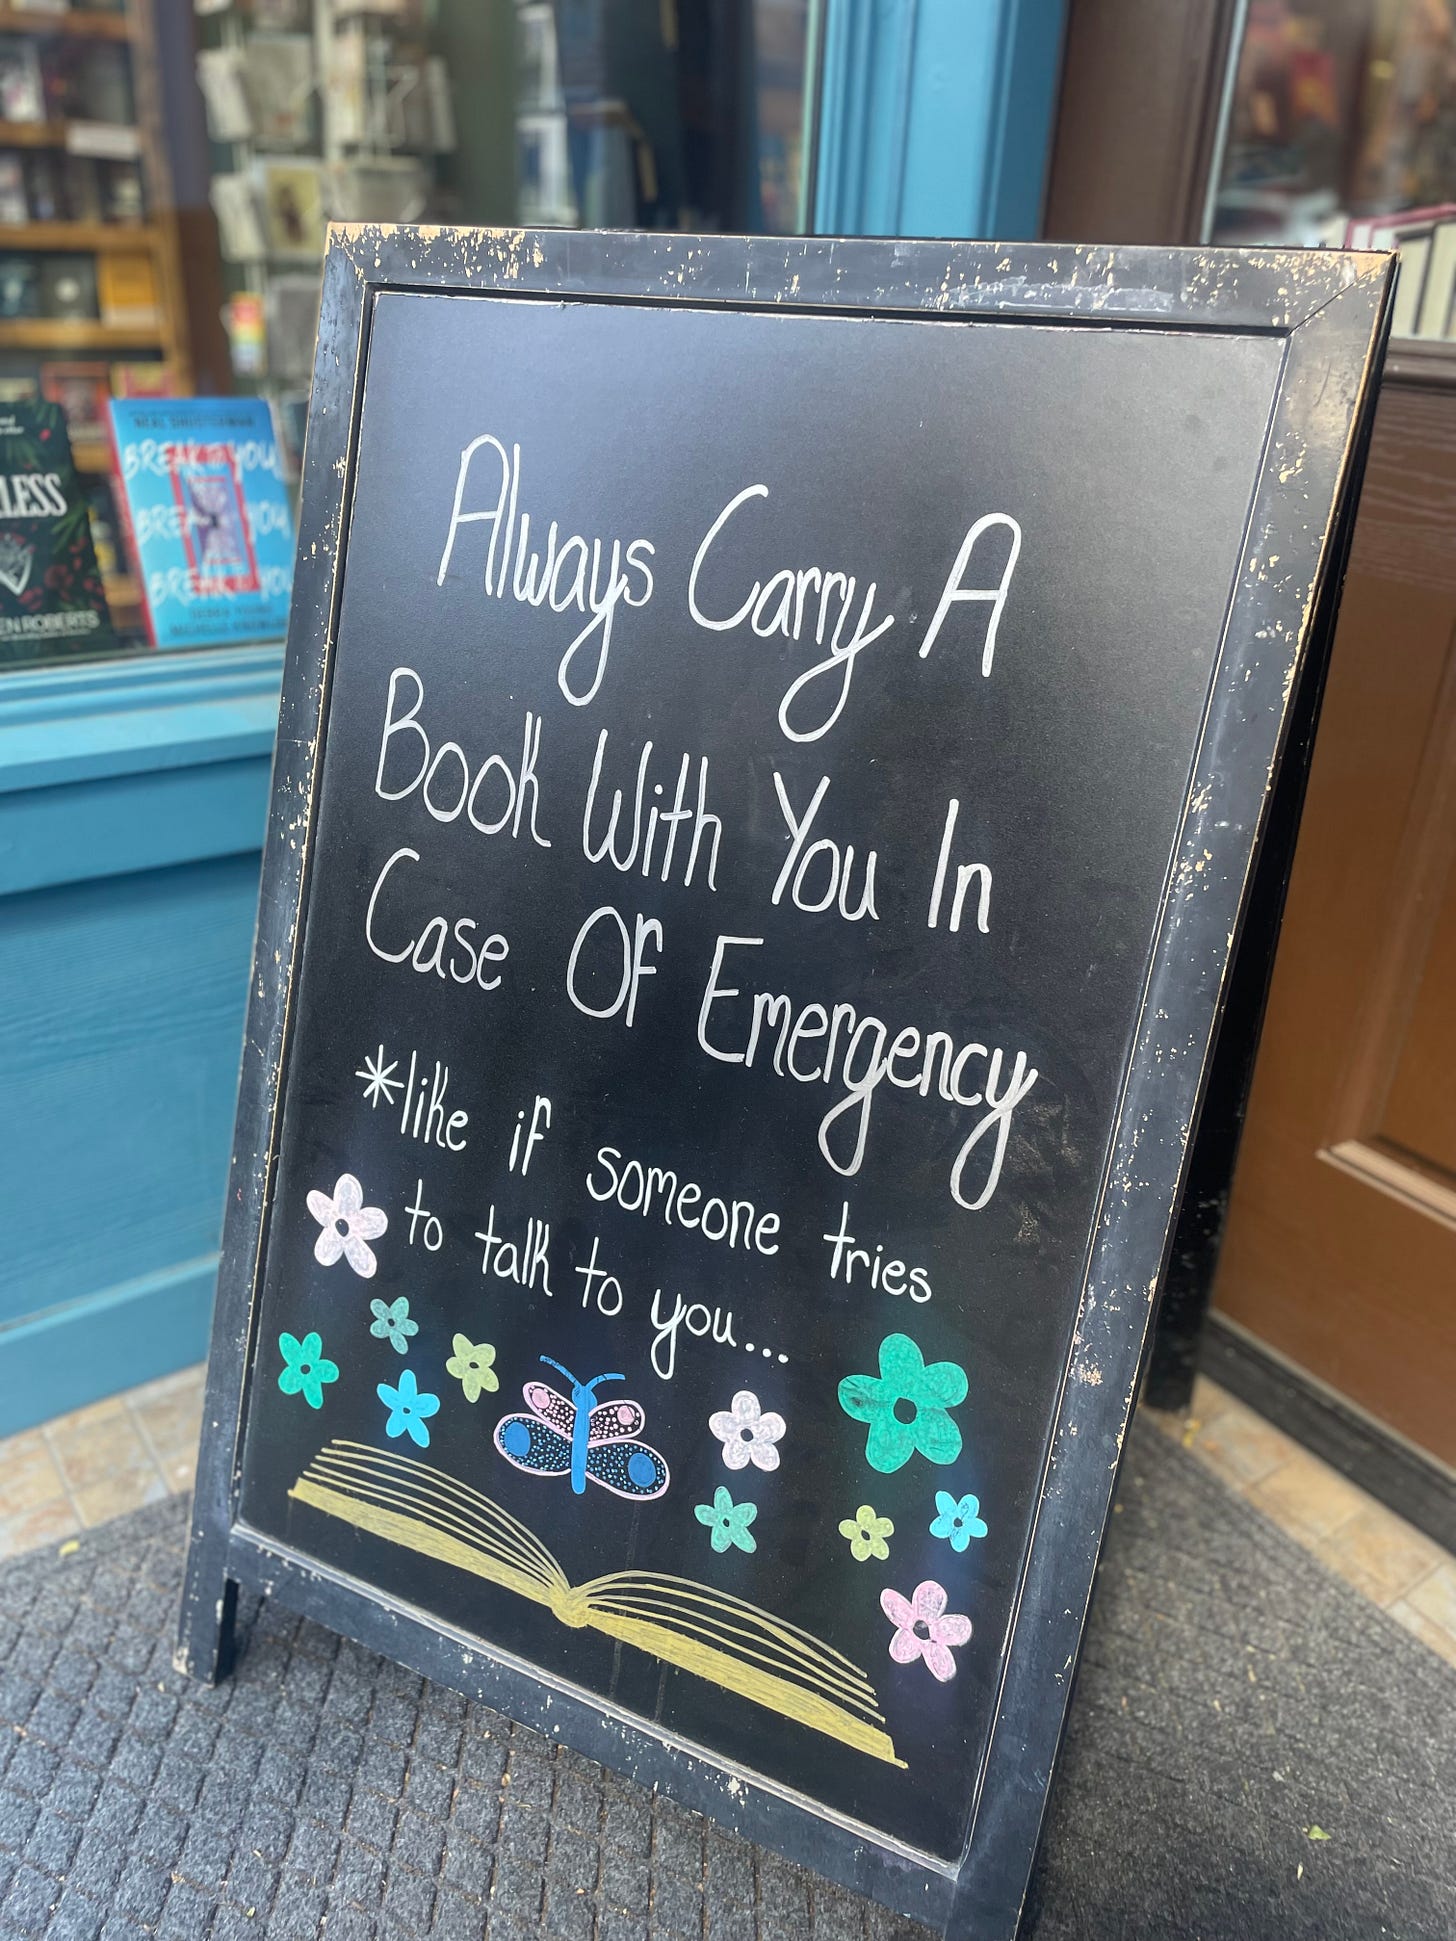 Always Carry A
Book With You In
Case Of Emergency
*like if someone tries
to talk to you...
LESS
EN ROBERTS
NEAL SHUSTERMAN
BREAK TO YOU
BREAK TO YOU
BREAK TO YOU
DEBRA YOUNG
MICHELLE KNOWLDEN